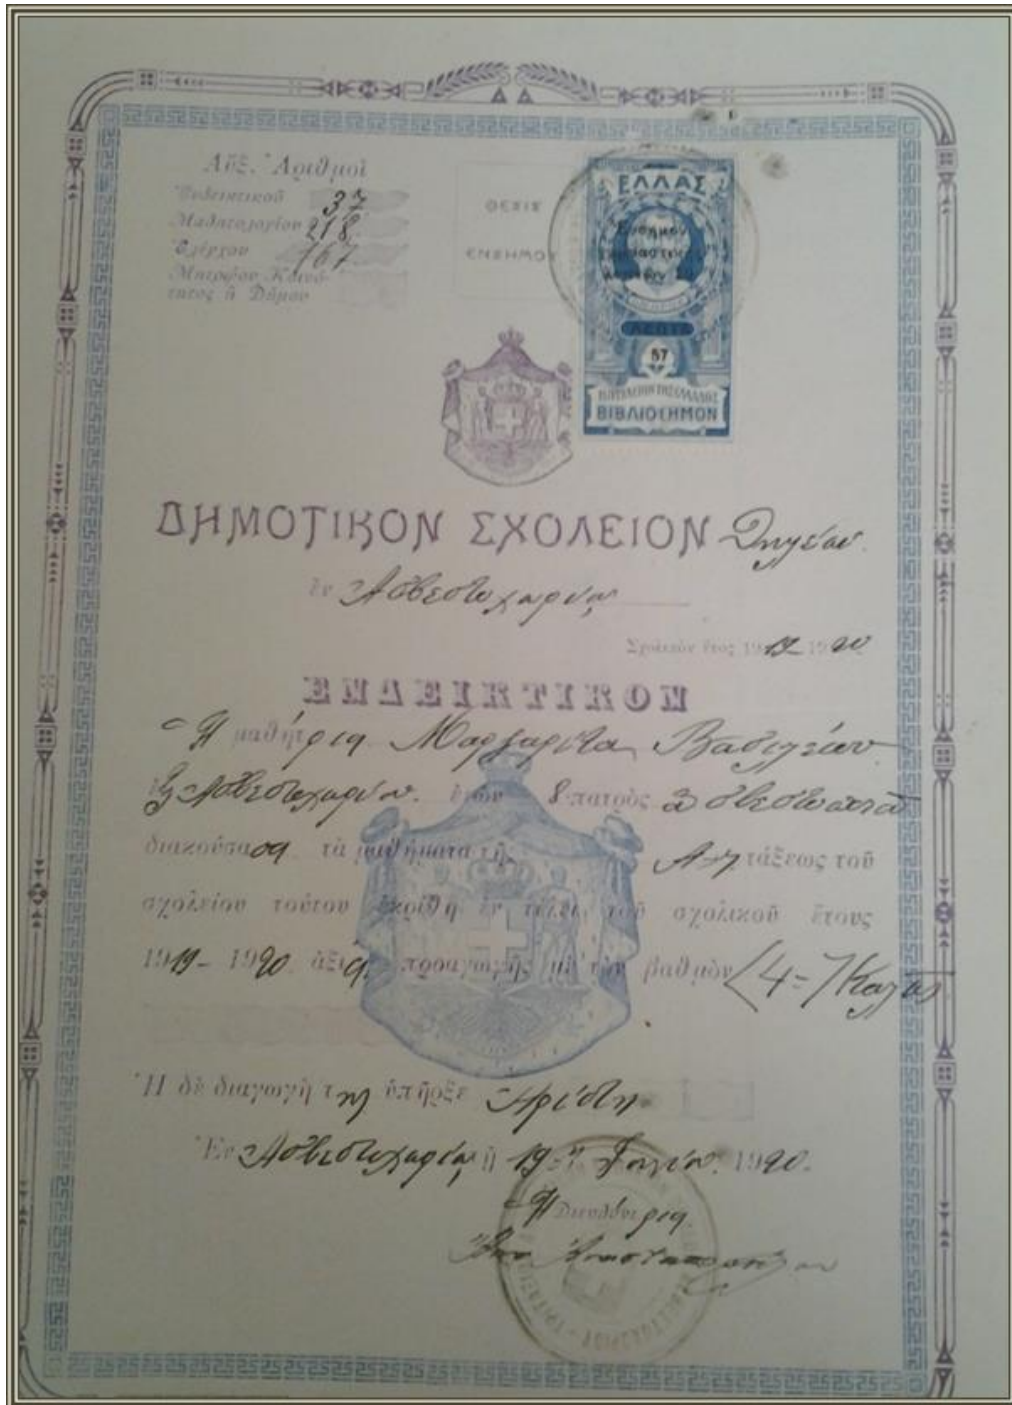 Αὔξ. Ἀριθμοὶ
Ἐνδεικτικοῦ 37
Μαθητολογίου 218
Ἐλέγχου 767
Μητρῴου Κοινό-
τητος ἢ Δήμου
ΘΕΣΙΣ
ΕΝΣΗΜΟΥ
ΕΛΛΑΣ
Ἔνσημον
ΛΕΠΤΑ
57
ΒΑΣΙΛΕΙΟΝ ΤΗΣ ΕΛΛΑΔΟΣ
ΒΙΒΛΙΟΣΗΜΟΝ
ΔΗΜΟΤΙΚΟΝ ΣΧΟΛΕΙΟΝ Θηλέων
ἐν Ἀσβεστοχωρίῳ
Σχολικὸν ἔτος 1919-1920
ΕΝΔΕΙΚΤΙΚΟΝ
Ἡ μαθήτρια Μαργαρίτα Βασιλείου
ἐξ Ἀσβεστοχωρίου ἐτῶν 8 πατρὸς ἀσβεστοποιοῦ
διακούσασα τὰ μαθήματα τῆς Α΄ης τάξεως τοῦ
σχολείου τούτου ἐκρίθη ἐν τέλει τοῦ σχολικοῦ ἔτους
1919-1920 ἀξία προαγωγῆς μὲ τὸν βαθμὸν (4=) Καλῶς
Ἡ δὲ διαγωγὴ της ὑπῆρξε Ἀρίστη
Ἐν Ἀσβεστοχωρίῳ τῇ 19-ῃ Ἰουνίου 1920.
Ἡ Διευθύντρια